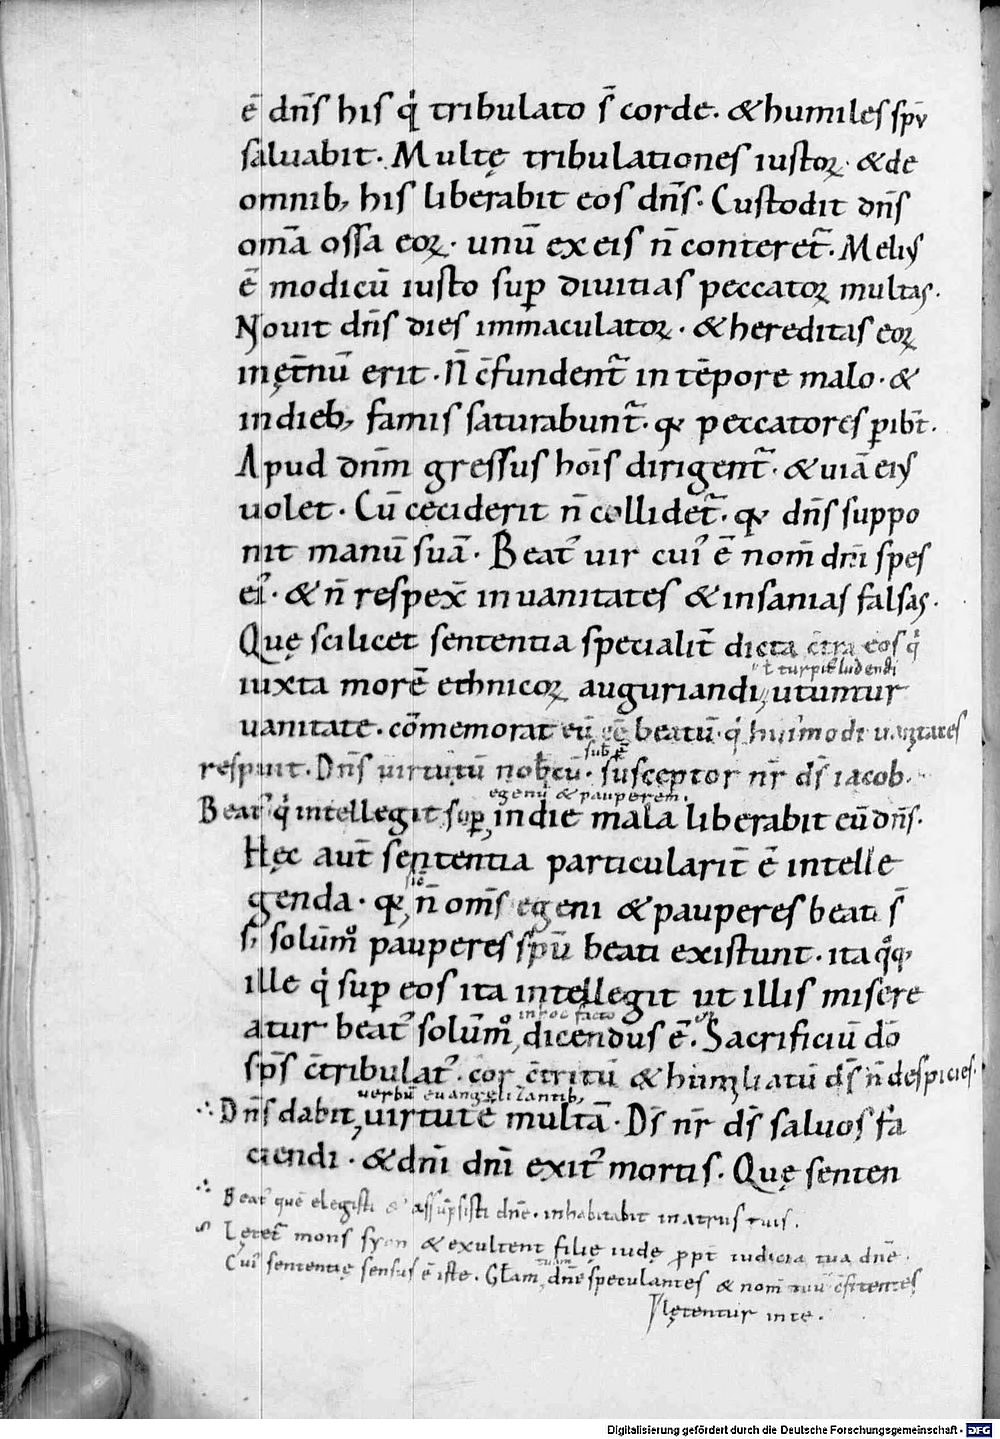 ē dn̄s his qͥ tribulato s̄ corde. & humiles spū
saluabit. Multę tribulationes iustoꝝ. & de
omnib; his liberabit eos dn̄s. Custodit dn̄s
om̄a ossa eoꝝ. unū ex eis n̄ conteret̃. Meliꝰ
ē modicū iusto suꝑ diuitias peccatoꝝ multas.
Nouit dn̄s dies immaculatoꝝ. & hereditas eoꝝ
in ęt̄nū erit. N̄ c̄fundent̃ in tēpore malo. &
in dieb; famis saturabunt̃. qꝛ peccatores ꝑibt̄.
Apud dn̄m gressus hoīs dirigent̃. & uiā eiꝰ
uolet. Cū ceciderit n̄ collidet̃. qꝛ dn̄s suppo
nit manū suā. Beatꝰ uir cuiꝰ ē nom̄ dn̄i spes
eiꝰ. & n̄ respex̄ in uanitates & insanias falsas.
Quę scilicet sententia specialit̄ dicta c̄tra eos qͥ
ł turpit̄ ludendi
iuxta morē ethnicoꝝ auguriandi, utuntur
uanitate. cōmemorat eū eē beatū. qͥ huiꝰmodi uanitates
respuit. Dn̄s uirtutū nobcū. susceptor nr̄ ds̄ iacob.
egenū & pauperem.
Beatꝰ qͥ intellegit suꝑ, in die mala liberabit eū dn̄s.
Hęc aut̄ sententia particularit̄ ē intelle
genda. qꝛ, n̄ oms̄ egeni & pauperes beati s̄
s; solūmͦ pauperes spū beati existunt. ita qͦqꝫ
ille qͥ suꝑ eos ita intellegit ut illis misere
in hoc facto
atur beatꝰ solūmͦ, dicendus ē. Sacrificiū dō
sps̄ c̄tribulatꝰ. cor c̄tritū & humiliatū ds̄ n̄ despicies.
uerbū euangelizantib;
Dn̄s dabit, uirtute multā. Ds̄ nr̄ ds̄ saluos fa
ciendi. & dn̄i dn̄i exitꝰ mortis. Quę senten
Beatꝰ quē elegisti & assūpsisti dn̄e. inhabitabit in atriis tuis.
Lętet̃ mons syon & exultent filię iudę ꝓpt̄ iudicia tua dn̄e.
Cuiꝰ sententię sensus ē iste. Gl̄am, dn̄e speculantes & nom̄ tuū c̄fitentes
lętentur in te.